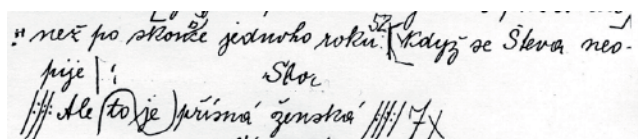 než po skonče jednoho roku. 52 [Když se Števa neo-
pije | :
Sbor
/:/: Ale (to je) přísná ženská /:/:/ 7x